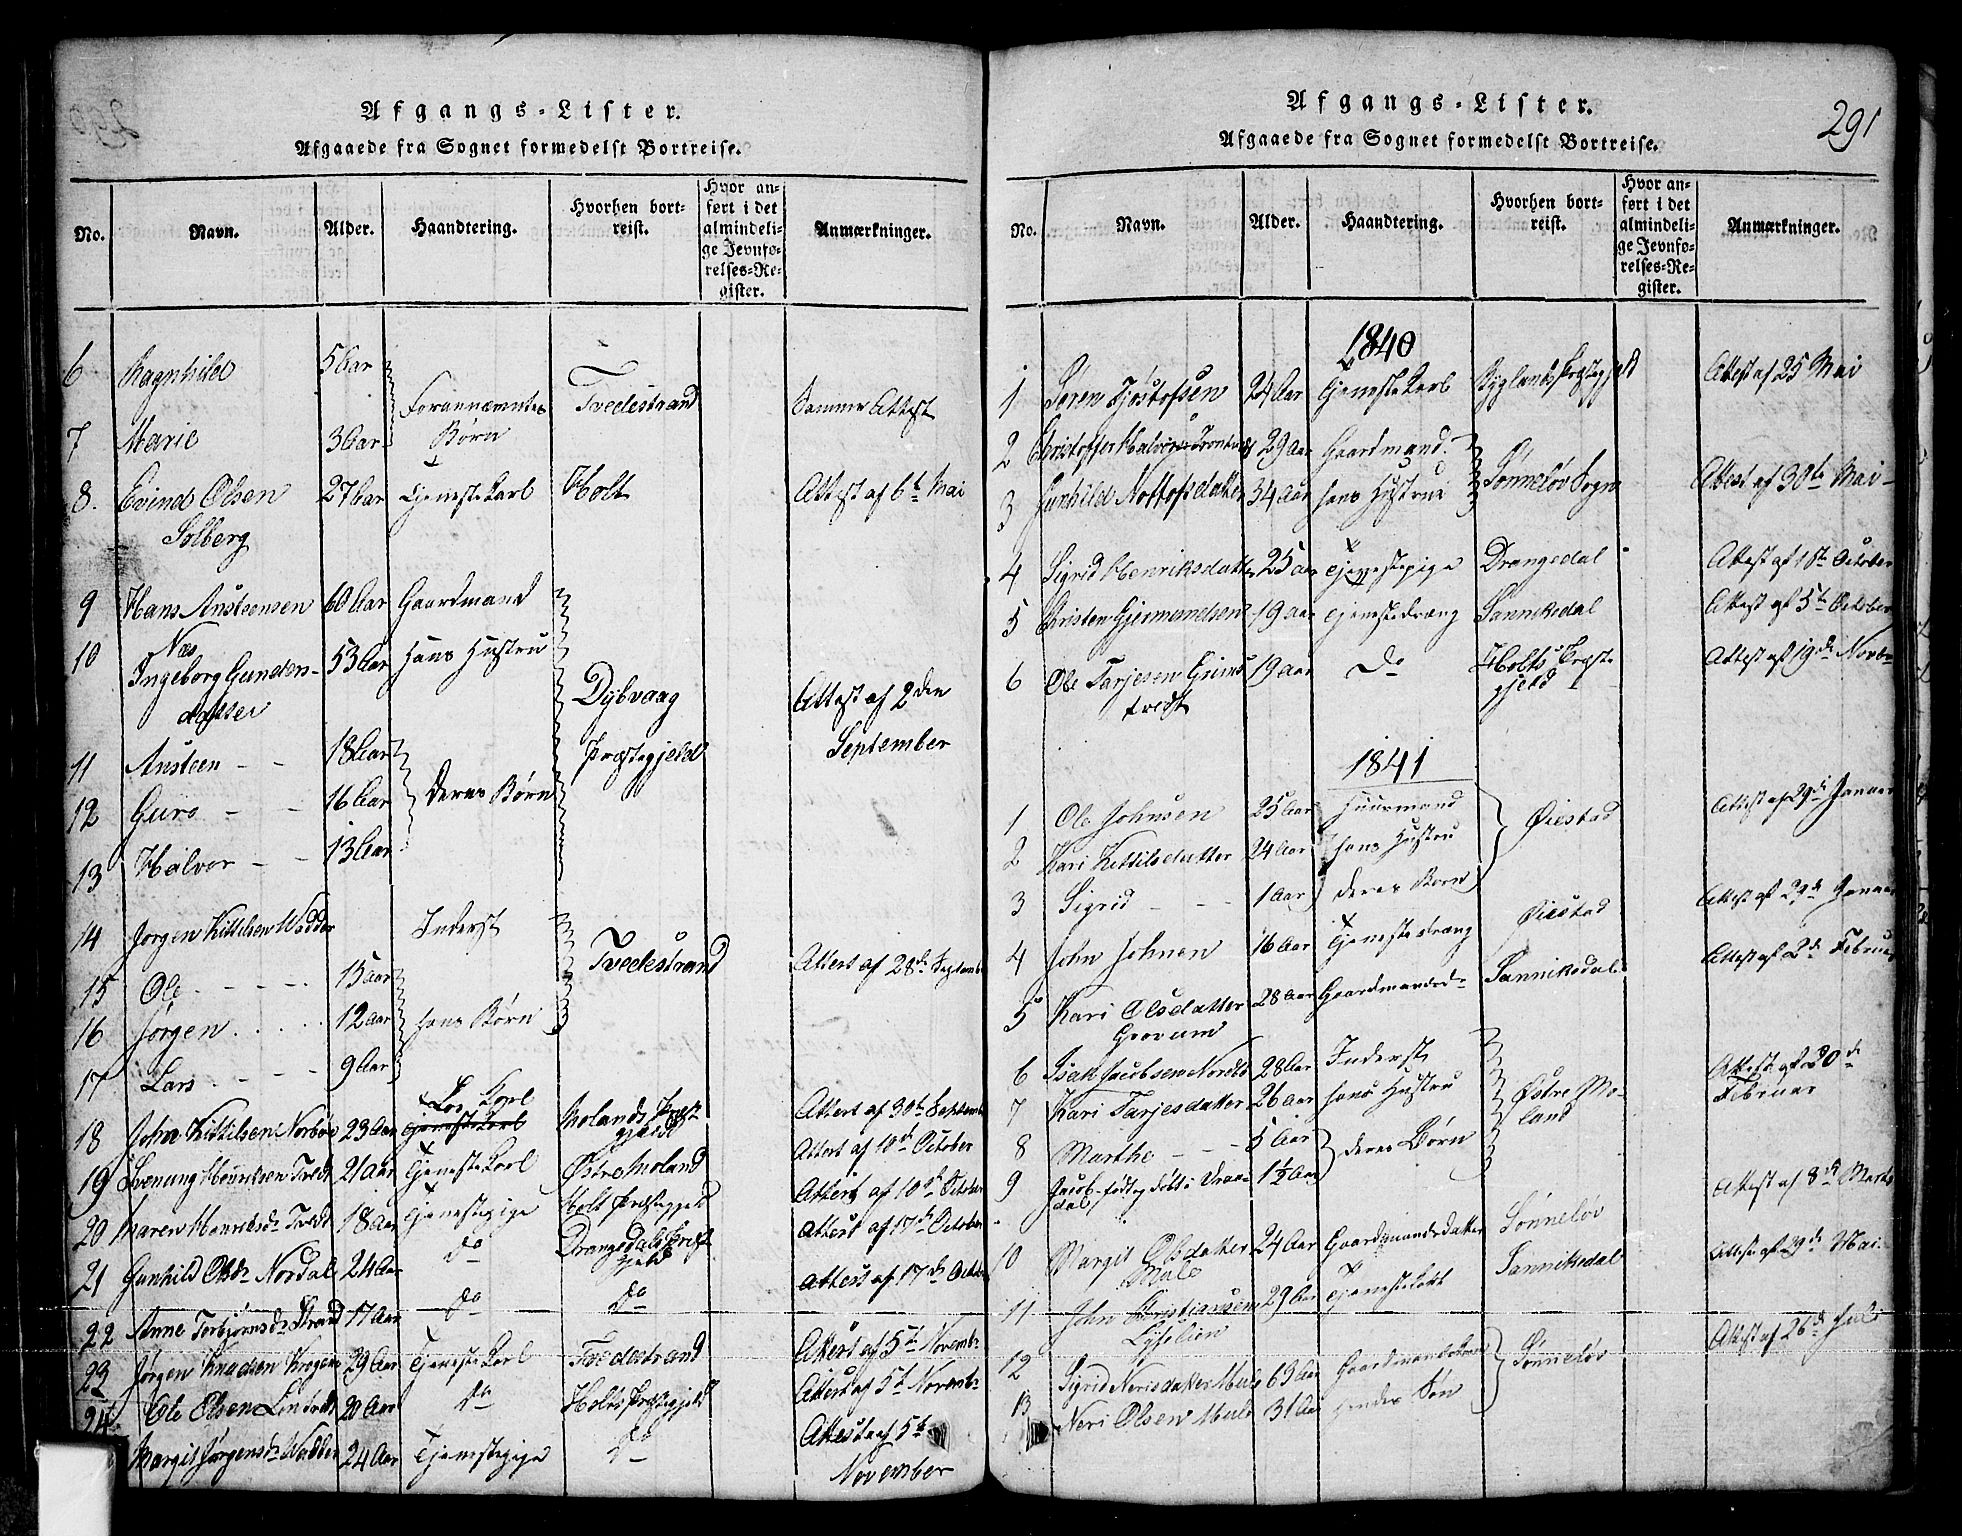 Afgangs-Lister.
Afgaaede fra Sognet formedelst Bortreise.
No. Navn. Alder. Haandtering. Hvorhen bortreist. Hvor anført i det almindelige Jevnførelses-Register. Anmærkninger.
6 Ragnhild 5 Aar
Forannævntes Børn Tvedestrand Samme Attest
7 Marie 3 Aar
8. Evind Olsen 27 Aar Tjenestekarl Holt Attest af 6te Mai
Solberg
9 Hans Austeensen 60 Aar Gaardmand
Næs
10 Ingeborg Gunders- 53 Aar Hans Hustru
datter
Dybvaag Præstegjeld Attest af 2den September
11 Austeen - - 18 Aar
12 Guro - - 16 Aar Deres Børn
13 Halvor - - 13 Aar
14 Jørgen Kittilsen Wadder Inderst
Tvedestrand Attest af 28de Septemb
15 Ole - - - - 15 Aar
16 Jørgen . . . . 12 Aar hans Børn
17 Lars . - - - 9 Aar
18 John Kittilsen Norbøe 23 Aar Løs Karl Molands Præstgjeld Attest af 30te Septemb
19 Svenung Henriksen Tvedt 21 Aar Tjenestekarl Østre Moland Attest af 10de October
20 Maren Henriksdr Tvedt 18 Aar Tjenestepige Holt Præstegjeld Attest af 10de October
21 Gunhild Olsdr Nordal 24 Aar do Drangedals Præstgjeld Attest af 17de October
22 Anne Torbjørnsdr Strand 17 Aar do do Attest af 17de Octob
23 Jørgen Knudsen 29 Aar Tjenestekarl Tvedestrand Attest af 5te Novembr
24 Ole Olsen 20 Aar do Holts Præstegjeld Attest af 5te Novembr
Margit Jørgensdr Wadder 24 Aar Tjenestepige do Attest af 5te
November
291
Afgangs-Lister.
Afgaaede fra Sognet formedelst Bortreise.
No. Navn. Alder. Haandtering. Hvorhen bortreist. Hvor anført i det almindelige Jevnførelses-Register. Anmærkninger.
1840
1 Søren Tjøstofsen 24 Aar Tjenestekarl Præstegjeld Attest af 25 Mai
2 Christoffer Halvorsen 29 Aar Gaardmand.
3 Gunhild Nottofsdatter 34 Aar hans Hustrue Sønneløv Sogn Attest af 30te Mai -
4 Sigrid Henriksdatter 25 Aar Tjenestepige Drangedal Attest af 1ste October
5 Kristen Gjermundsen 19 Aar Tjenestedræng Sannikedal Attest af 5te October
6 Ole Tarjesen Grims 19 Aar do Holts Præste Attest af 19de Novbr
tvedt gjeld
1841
1 Ole Johnsen 25 Aar Huusmand
Øiestad Attest af 29de Januar
2 Kari Kittilsdatter 24 Aar hans Hustru
3 Sigrid - - - 1 Aar deres Børn
4 John Johnsen 16 Aar Tjenestedræng Øiestad Attest af 29de Januar
5 Kari Olsdatter 28 Aar Gaardmandsdr Sannikedal Attest af 2de Februar
Grovum
6 Isak Jacobsen Nordbø 28 Aar Inderst
7 Kari Tarjesdatter 26 Aar hans Hustru Østre Mo- Attest af 20de
land Februar
8 Marthe - - - 5 Aar
deres Børn
9 Jacob født og døbt i Vraa- 1½ Aar
dal
10 Margit Olsdatter 24 Aar Gaardmandsdatter Sønneløv Attest af 8de Marts
Mule
11 John Kristiansen 29 Aar Tjenestekarl Sannikedal Attest af 29de Mai.
12 Sigrid Nerisdatter Mule 63 Aar Gaardmandsenke Sønneløv Attest af 26de Juli
13 Neri Olsen Mule 31 Aar hendes Søn